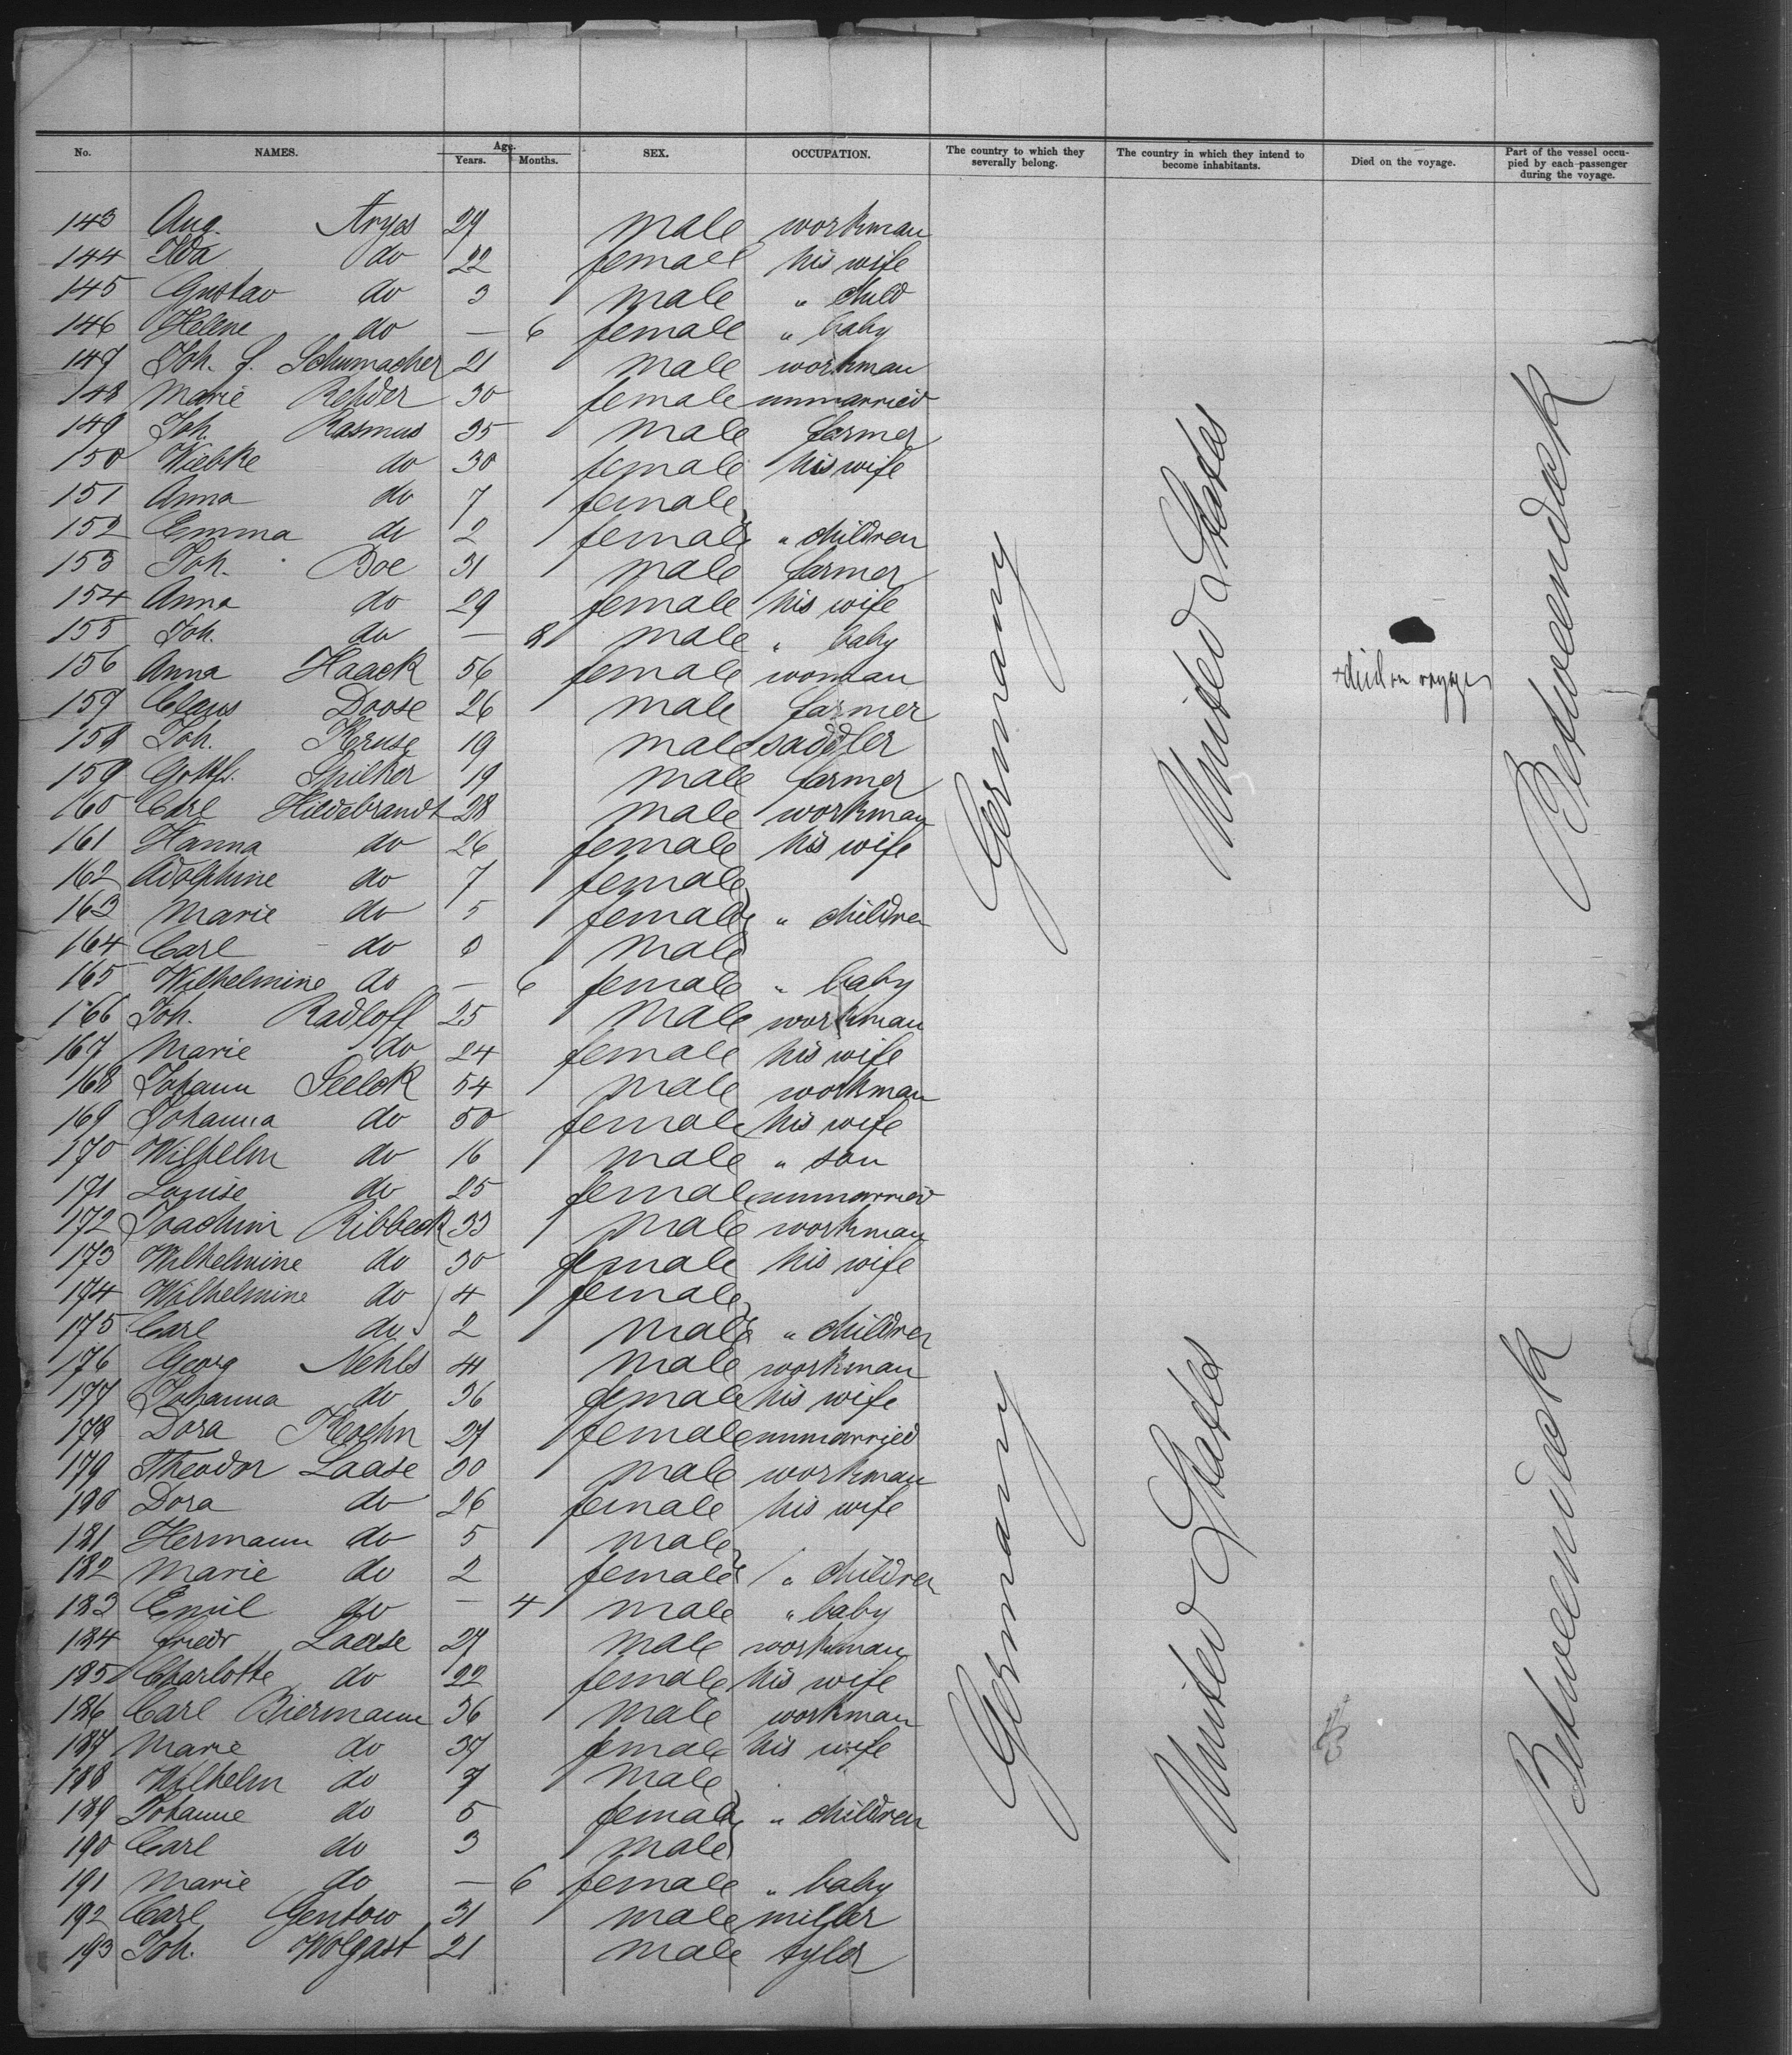 No. NAMES. Age. Years. Months. SEX. OCCUPATION. The country to which they severally belong. The country in which they intend to become inhabitants. Died on the voyage. Part of the vessel occupied by each passenger during the voyage.
143 Aug. 29 male workman
144 Ida do 22 female his wife
145 Gustav do 3 male " child
146 Helene do — 6 female " baby
147 Joh. f. Schumacher 21 male workman
148 Marie Rehder 30 female unmarried
149 Joh. Rasmus 35 male farmer
150 Wiebke do 30 female his wife
151 Anna do 7 female
152 Emma do 2 female " children
153 Joh. Boe 31 male farmer
154 Anna do 29 female his wife
155 Joh. do — 8 male " baby
156 Anna Haack 56 female woman + died on voyage
157 Claus Doose 26 male farmer
158 Joh. Kruse 19 male saddler
159 Gottf. Spilker 19 male farmer
160 Carl Hildebrandt 28 male workman
161 Hanna do 26 female his wife
162 Adolphine do 7 female
163 Marie do 5 female " children
164 Carl do male
165 Wilhelmine do — 6 female " baby
166 Joh. Radloff 25 male workman
167 Marie do 24 female his wife
168 Johann Seelck 54 male workman
169 Johanna do 50 female his wife
170 Wilhelm do 16 male " son
171 Louise do 25 female unmarried
172 Joachim Ribbeck 33 male workman
173 Wilhelmine do 30 female his wife
174 Wilhelmine do 4 female
175 Carl do 2 male " children
176 Georg Nehls 41 male workman
177 Johanna do 36 female his wife
178 Dora Koehn 27 female unmarried
179 Theodor Laase 30 male workman
180 Dora do 26 female his wife
181 Hermann do 5 male
182 Marie do 2 female " children
183 Emil do — 4 male " baby
184 Friedr Laase 27 male workman
185 Charlotte do 22 female his wife
186 Carl Biermann 36 male workman
187 Marie do 37 female his wife
188 Wilhelm do 7 male
189 Johanne do 5 female " children
190 Carl do 3 male
191 Marie do — 6 female " baby
192 Carl Gentow 31 male miller
193 Joh. Wolgast 21 male tyler
Germany
United States
Betweendeck
Germany
United States
Betweendeck